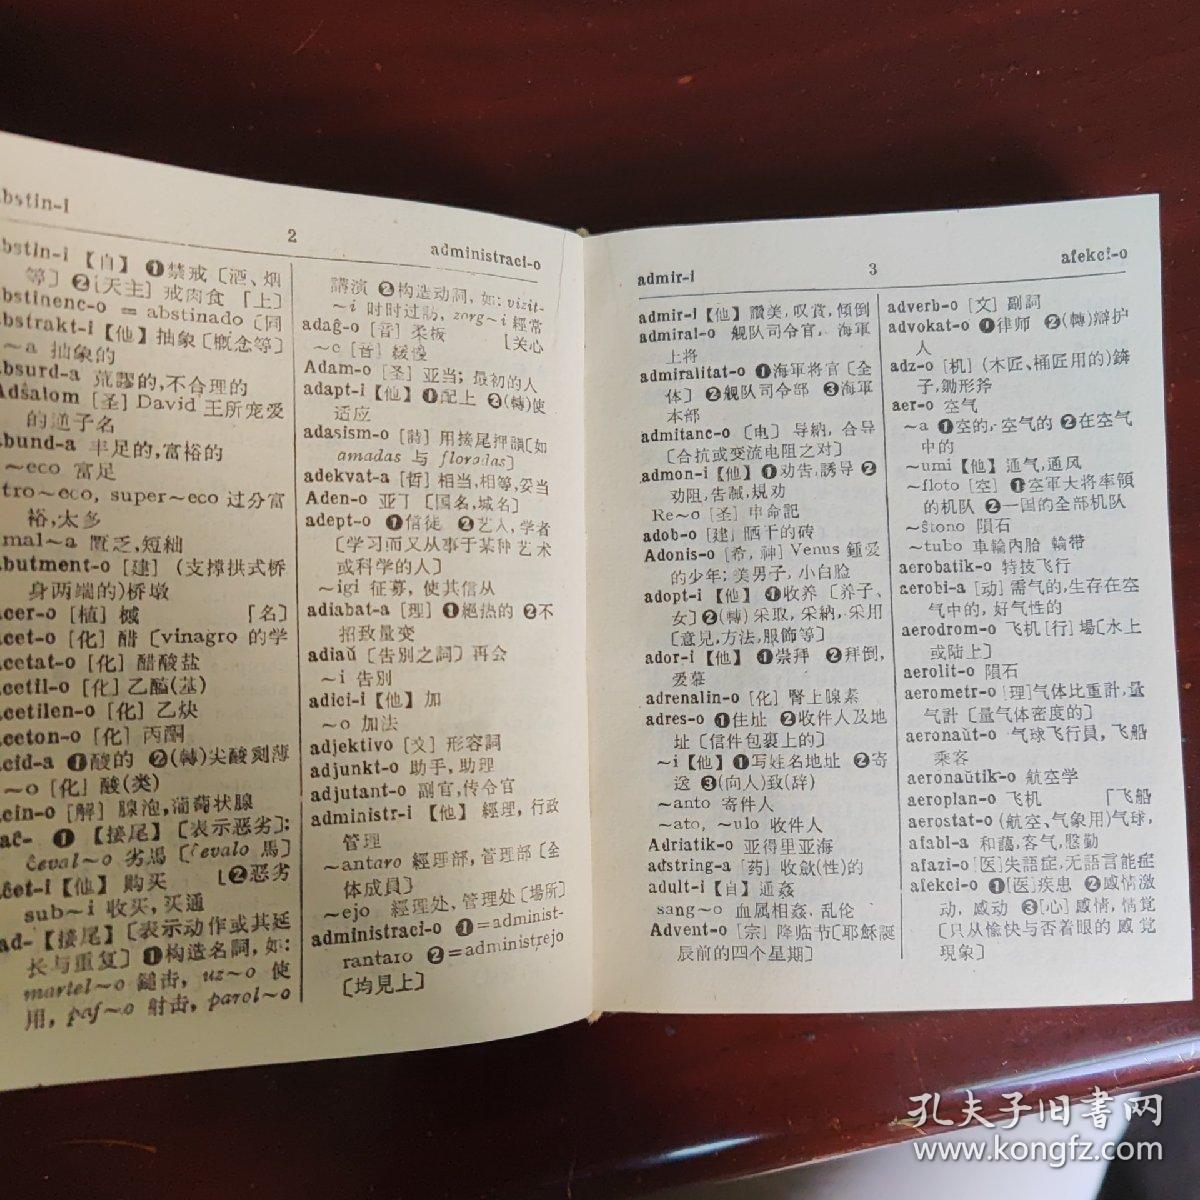 bstin-i
2
administraci-o
bstin-i【自】❶禁戒〔酒、烟
等〕❷[天主] 戒肉食「上〕
bstinenc-o = abstinado〔同
bstrakt-i【他】抽象〔概念等〕
~a 抽象的
bsurd-a 荒謬的,不合理的
Adŝalom [圣] David 王所宠爱
的逆子名
bund-a 丰足的,富裕的
~eco 富足
tro~eco, super~eco 过分富
裕,太多
mal~a 匱乏,短絀
butment-o [建] (支撑拱式桥
身两端的)桥墩
cer-o [植] 槭「名〕
cet-o [化] 醋〔vinagro 的学
cetat-o [化] 醋酸盐
cetil-o [化] 乙醯(基)
cetilen-o [化] 乙炔
ceton-o [化] 丙酮
cid-a ❶酸的 ❷(轉)尖酸刻薄
~o [化] 酸(类)
cin-o [解] 腺泡,葡萄状腺
aĉ- ❶【接尾】〔表示恶劣〕:
ĉeval~o 劣馬〔ĉevalo 馬〕
ĉet-i【他】购买 [❷恶劣
sub~i 收买,买通
ad-【接尾】〔表示动作或其延
长与重复〕❶构造名詞,如:
martel~o 鎚击, uz~o 使
用, paf~o 射击, parol~o
講演 ❷构造动詞,如: vizit-
~i 时时过訪, zorg~i 經常
adaĝ-o [音] 柔板 [关心
~e [音] 緩慢
Adam-o [圣] 亚当; 最初的人
adapt-i【他】❶配上 ❷(轉)使
适应
adasism-o [詩] 用接尾押韻[如
amadas 与 floradas]
adekvat-a [哲] 相当,相等,妥当
Aden-o 亚丁 [国名,城名]
adept-o ❶信徒 ❷艺人,学者
〔学习而又从事于某种艺术
或科学的人〕
~igi 征募, 使其信从
adiabat-a [理] ❶絕热的 ❷不
招致量变
adiaŭ〔告別之詞〕再会
~i 告別
adici-i【他】加
~o 加法
adjektivo [文] 形容詞
adjunkt-o 助手,助理
adjutant-o 副官,传令官
administr-i【他】經理,行政
管理
~antaro 經理部,管理部〔全
体成員〕
~ejo 經理处,管理处〔場所〕
administraci-o ❶=administ-
rantaro ❷=administrejo
〔均見上〕
admir-i
3
afekci-o
admir-i【他】讚美,叹賞,傾倒
admiral-o 舰队司令官, 海軍
上将
admiralitat-o ❶海軍将官〔全
体〕❷舰队司令部 ❸海軍
本部
admitanc-o〔电〕导納, 合导
〔合抗或变流电阻之对〕
admon-i【他】❶劝告,誘导 ❷
劝阻,告誡,規劝
Re~o [圣] 申命記
adob-o [建] 晒干的砖
Adonis-o [希,神] Venus 鍾爱
的少年; 美男子, 小白脸
adopt-i【他】❶收养〔养子、
女〕❷(轉)采取,采納,采用
〔意見,方法,服飾等〕
ador-i【他】❶崇拜 ❷拜倒,
爱慕
adrenalin-o [化] 腎上腺素
adres-o ❶住址 ❷收件人及地
址〔信件包裹上的〕
~i【他】❶写姓名地址 ❷寄
送 ❸(向人)致(辞)
~anto 寄件人
~ato, ~ulo 收件人
Adriatik-o 亚得里亚海
adstring-a [药] 收斂(性)的
adult-i【自】通姦
sang~o 血属相姦, 乱伦
Advent-o [宗] 降临节〔耶穌誕
辰前的四个星期〕
adverb-o [文] 副詞
advokat-o ❶律师 ❷(轉)辯护
人
adz-o [机] (木匠、桶匠用的)錛
子,鋤形斧
aer-o 空气
~a ❶空的, 空气的 ❷在空气
中的
~umi【他】通气,通风
~floto [空] ❶空軍大将率領
的机队 ❷一国的全部机队
~ŝtono 隕石
~tubo 車輪內胎 輪带
aerobatik-o 特技飞行
aerobi-a [动] 需气的,生存在空
气中的, 好气性的
aerodrom-o 飞机[行]場〔水上
或陆上〕
aerolit-o 隕石
aerometr-o [理]气体比重計,量
气計〔量气体密度的〕
aeronaŭt-o 气球飞行員, 飞船
乘客
aeronaŭtik-o 航空学
aeroplan-o 飞机「飞船
aerostat-o (航空、气象用)气球,
afabl-a 和藹,客气,慇勤
afazi-o [医]失語症,无語言能症
afekci-o ❶[医]疾患 ❷感情激
动, 感动 ❸[心] 感情, 情覚
〔只从愉快与否着眼的感覚
現象〕
孔夫子旧書网
www.kongfz.com